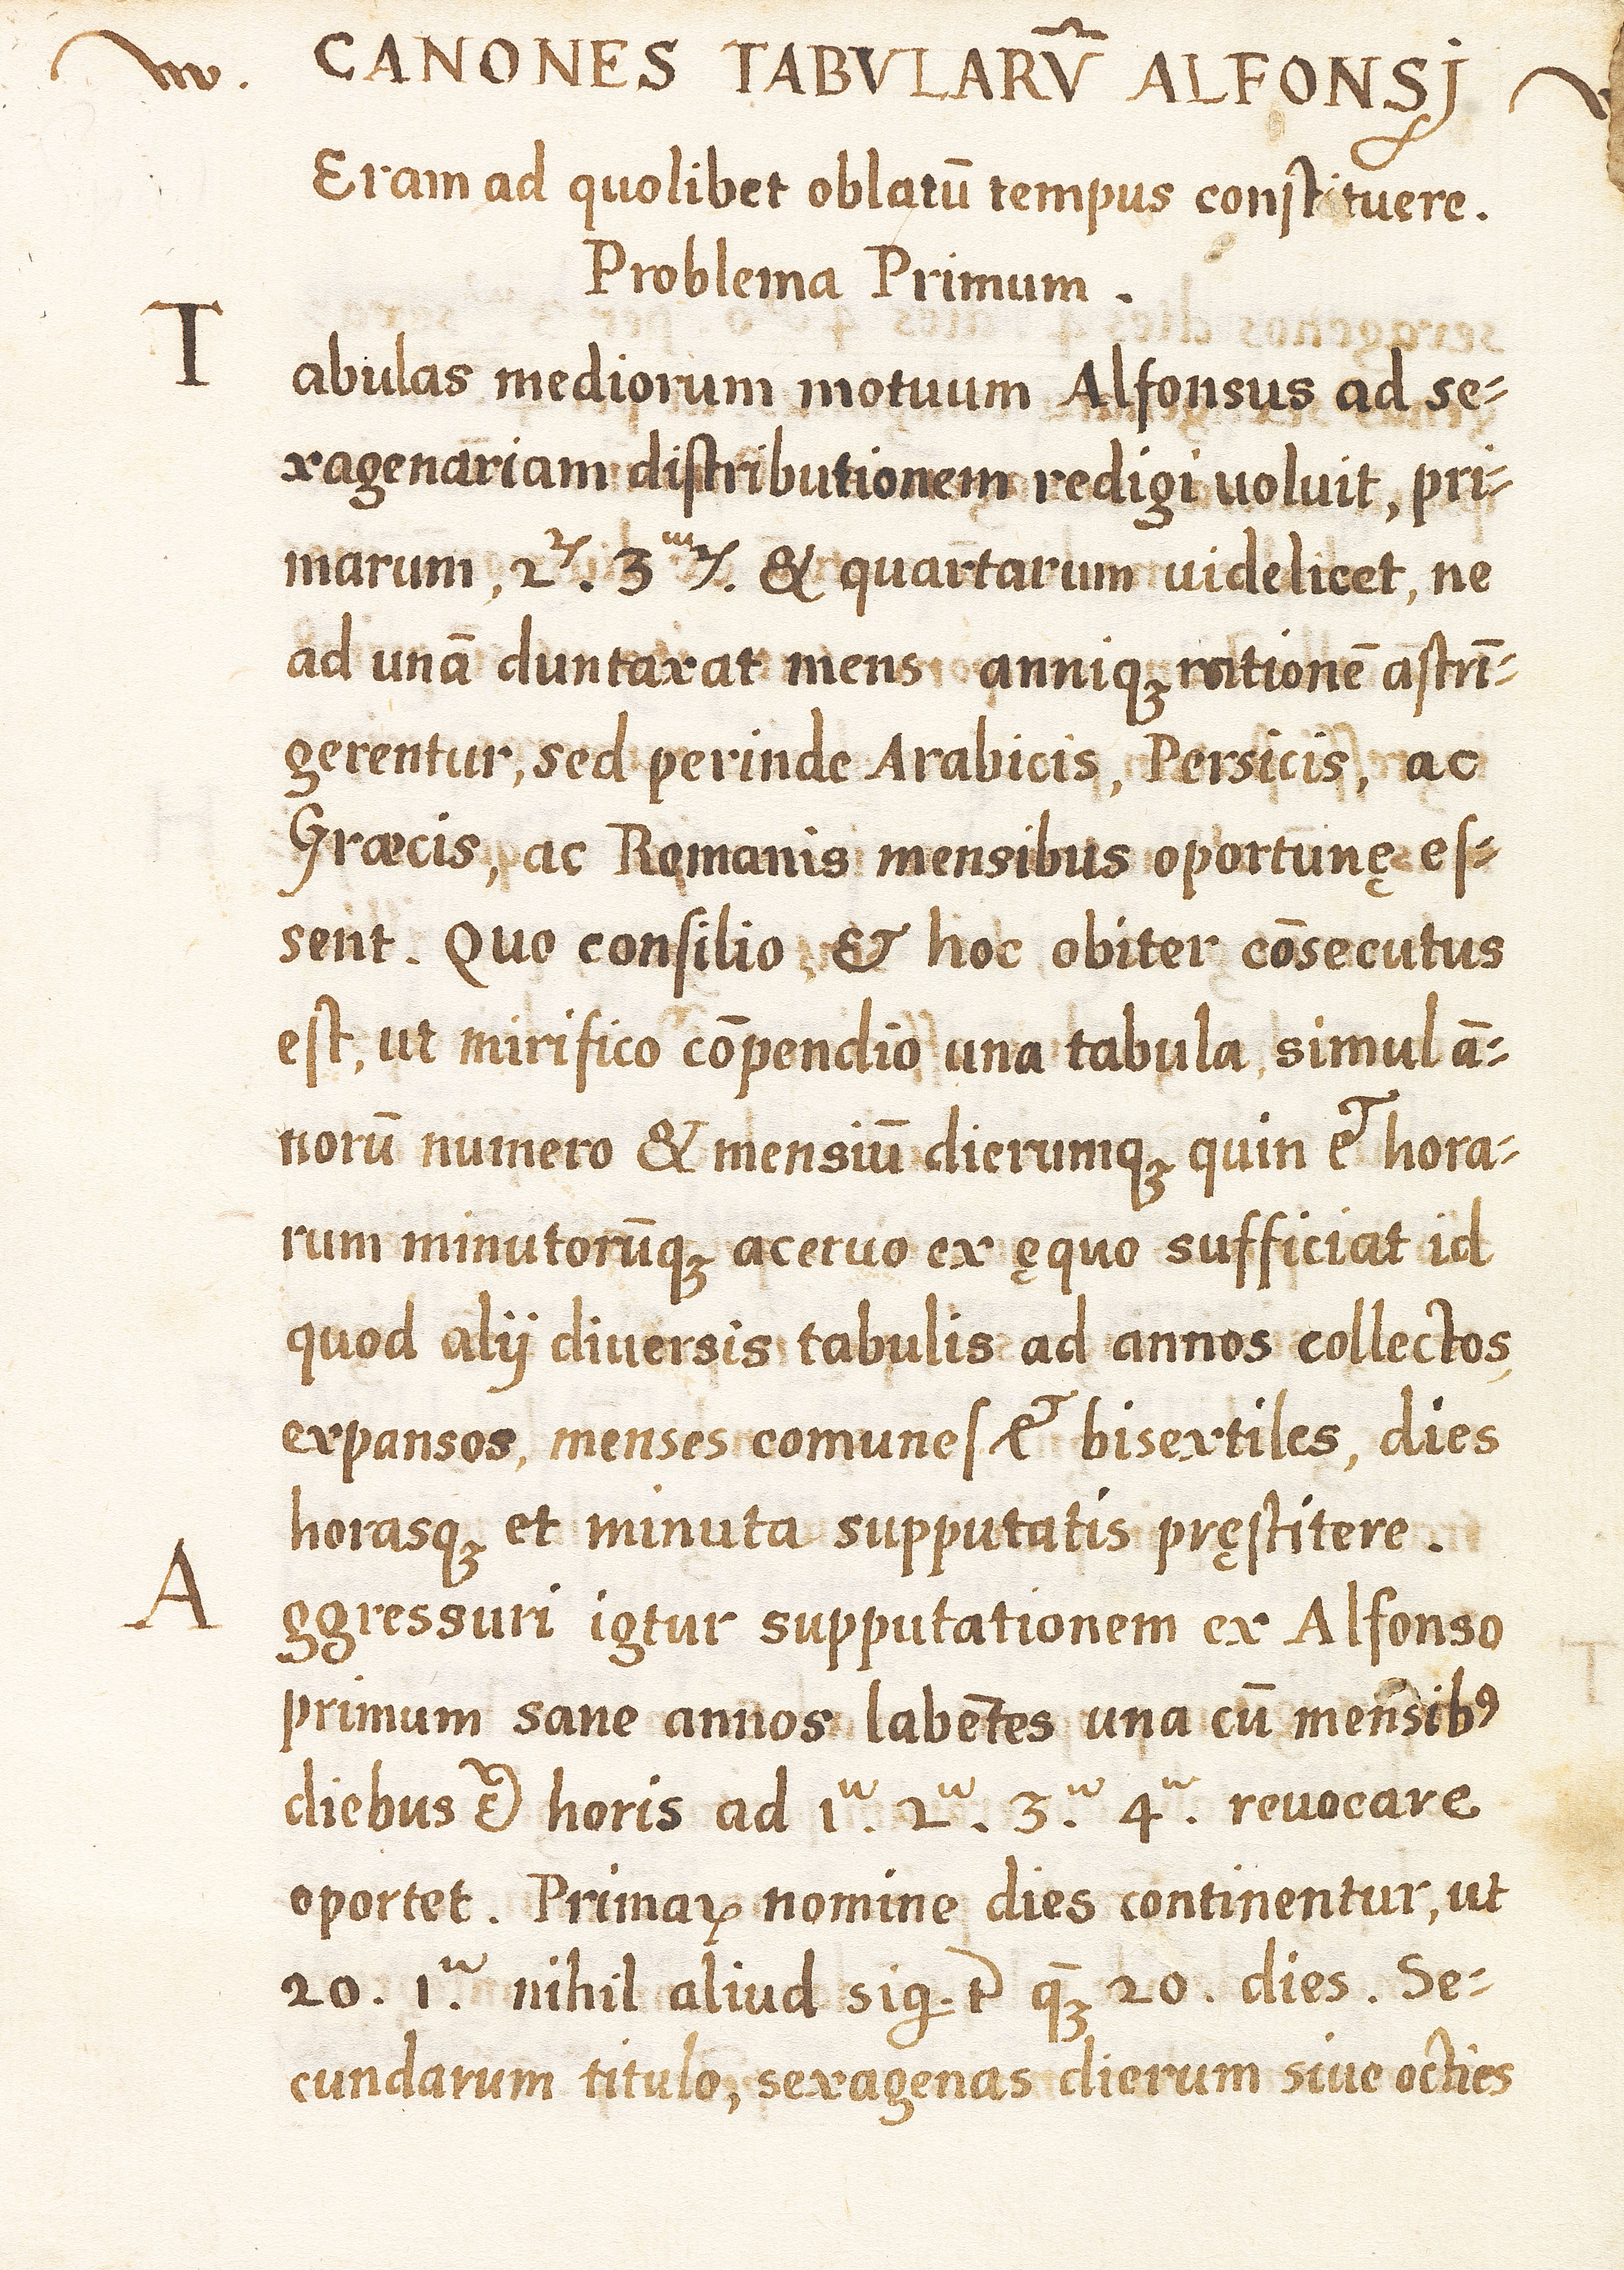 CANONES TABVLARV̄ ALFONSJ
Eram ad quolibet oblatū tempus constituere.
Problema Primum.
Tabulas mediorum motuum Alfonsus ad se-
xagenariam distributionem redigi uoluit, pri-
marum, 2ꝝ. 3ꝝ. & quartarum uidelicet, ne
ad unā duntaxat mens anniqꝫ rationē astrī-
gerentur, sed perinde Arabicis, Persicis, ac
Græcis, ac Romanis mensibus oportunę es-
sent. Quo consilio, & hoc obiter cōsecutus
est, ut mirifico cōpendio una tabula, simul ā-
norū numero & mensiū dierumqꝫ quin & hora-
rum minutorūqꝫ aceruo ex ęquo sufficiat id
quod alij diuersis tabulis ad annos collectos,
expansos, menses comunes & bisextiles, dies
horasqꝫ et minuta supputatis pręstitere.
Aggressuri igtur supputationem ex Alfonso
primum sane annos labētes una cū mensibꝰ
diebus & horis ad 1ᵃ. 2ᵃ. 3.ᵃ 4ᵃ. reuocare
oportet. Primaꝝ nomine dies continentur, ut
20. 1.ᵃ nihil aliud sig.t qꝫ̄ 20. dies. Se-
cundarum titulo, sexagenas dierum siue octies